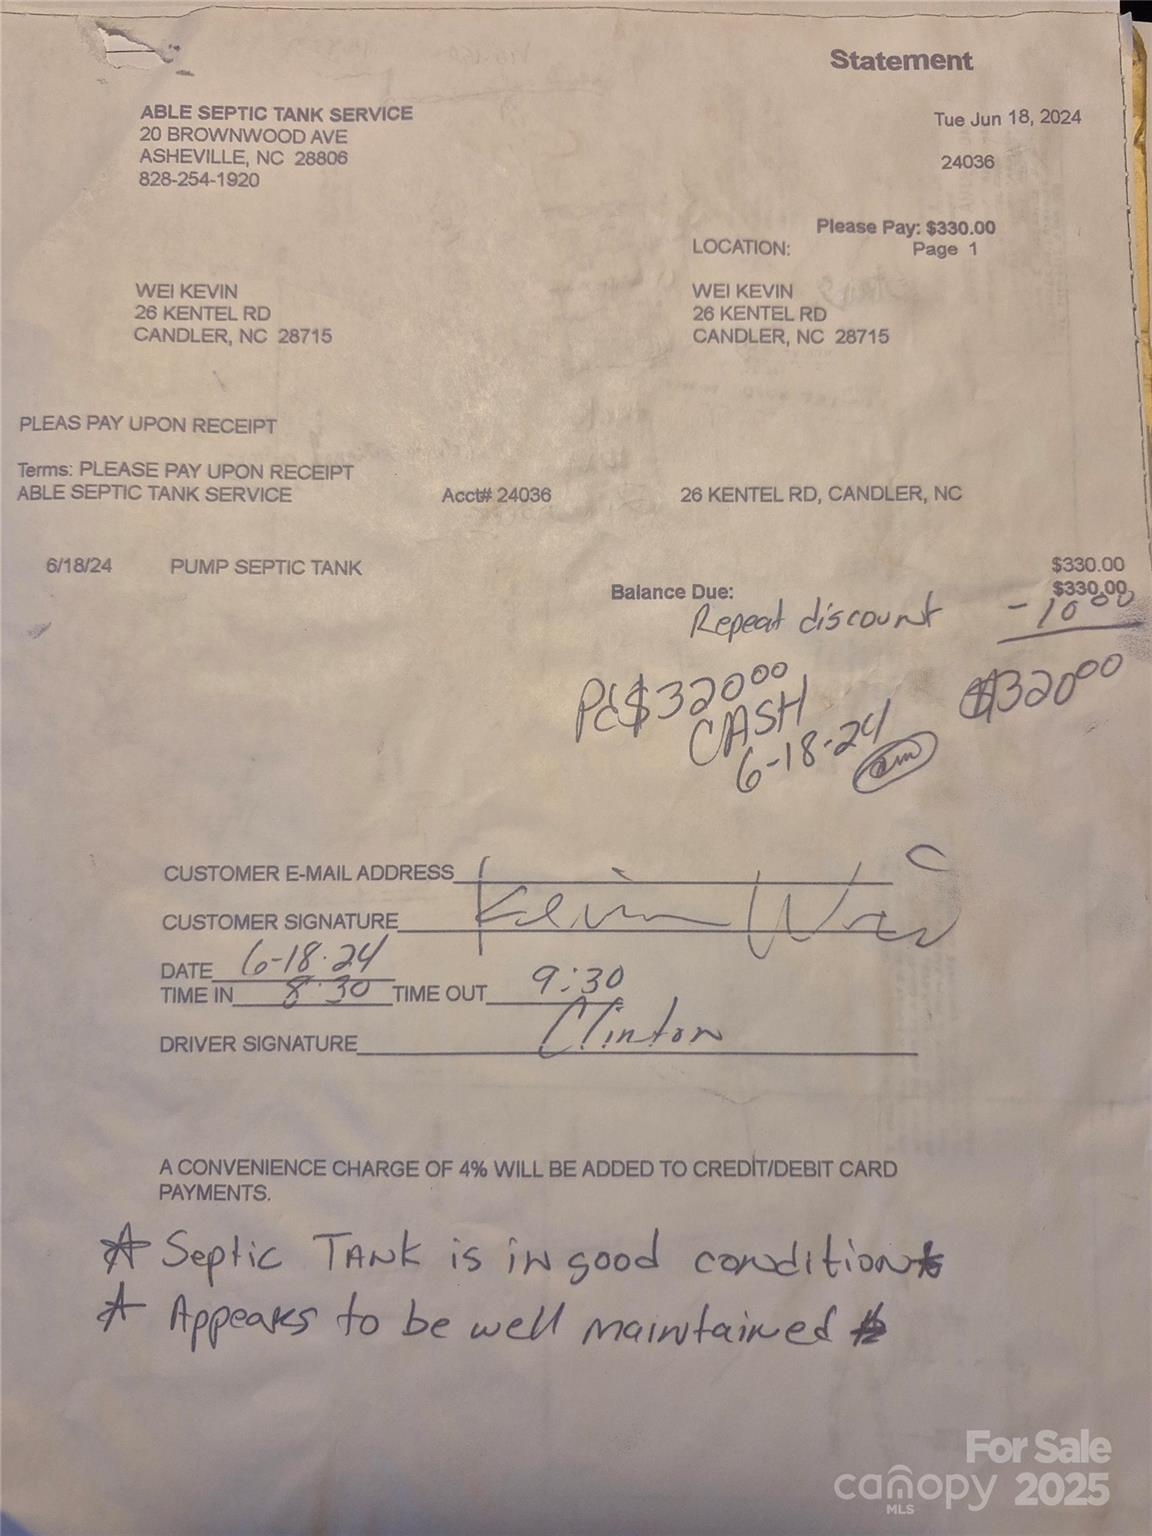 Statement
ABLE SEPTIC TANK SERVICE
20 BROWNWOOD AVE
ASHEVILLE, NC 28806
828-254-1920
Tue Jun 18, 2024
24036
Please Pay: $330.00
LOCATION: Page 1
WEI KEVIN WEI KEVIN
26 KENTEL RD 26 KENTEL RD
CANDLER, NC 28715 CANDLER, NC 28715
PLEAS PAY UPON RECEIPT
Terms: PLEASE PAY UPON RECEIPT
ABLE SEPTIC TANK SERVICE Acct# 24036 26 KENTEL RD, CANDLER, NC
6/18/24 PUMP SEPTIC TANK $330.00
Balance Due: $330.00
Repeat discount - 10 00
Pd $320 00 $320 00
CASH
6-18-24
CUSTOMER E-MAIL ADDRESS
CUSTOMER SIGNATURE Kevin Wei
DATE 6-18-24
TIME IN 8:30 TIME OUT 9:30
DRIVER SIGNATURE Clinton
A CONVENIENCE CHARGE OF 4% WILL BE ADDED TO CREDIT/DEBIT CARD
PAYMENTS.
* Septic TANK is in good condition *
* Appears to be well maintained *
For Sale
canopy 2025
MLS